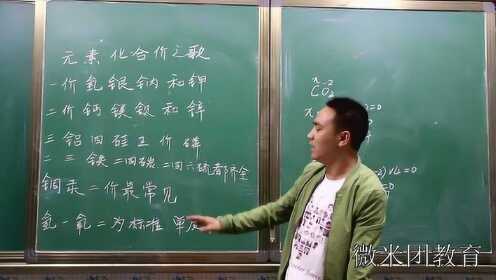 元素化合价之歌
一价氢银钠和钾
二价钙镁钡和锌
三铝四硅五价磷
二三铁二四碳二四六硫都齐全
铜汞二价最常见
氢一氧二为标准 单
x -2
CO₂
x
=0
=0
微米团教育